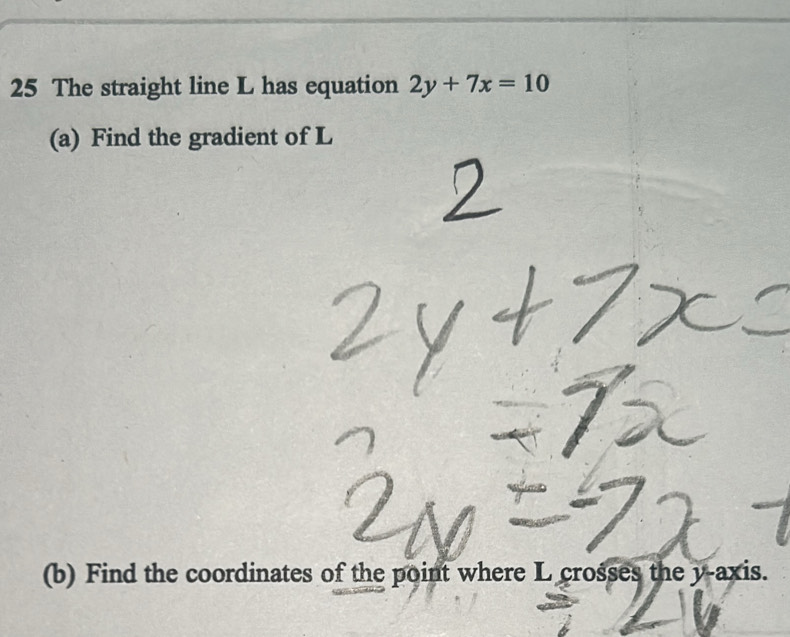 25 The straight line L has equation 2y + 7x = 10
(a) Find the gradient of L
2
2y + 7x =
7x
2y = -7x +
(b) Find the coordinates of the point where L crosses the y-axis.